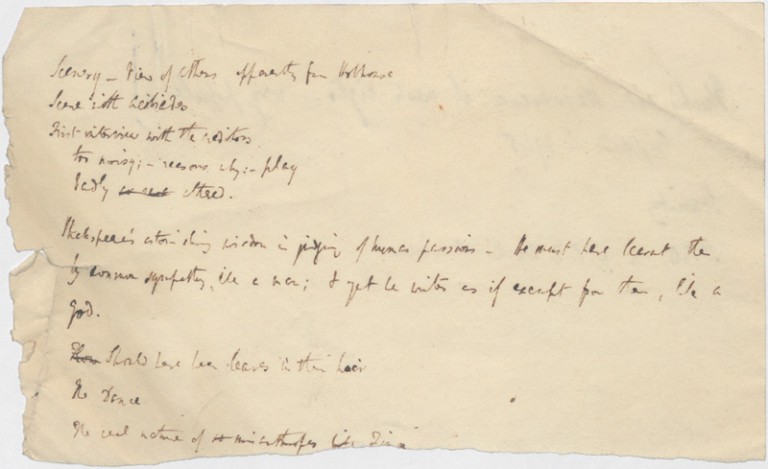 Scenery — View of Athens apparently from Hobhouse
Scene with Alcibiades
First interview with the creditors
too noisy; — reasons why; — play
badly altered.
Shakspeare's astonishing wisdom in judging of human passions — He must have learnt them
by common sympathy, like a man; & yet he writes as if exempt from them, like a
God.
Should have been leaves in their hair
The Dance
The real nature of misanthropes like